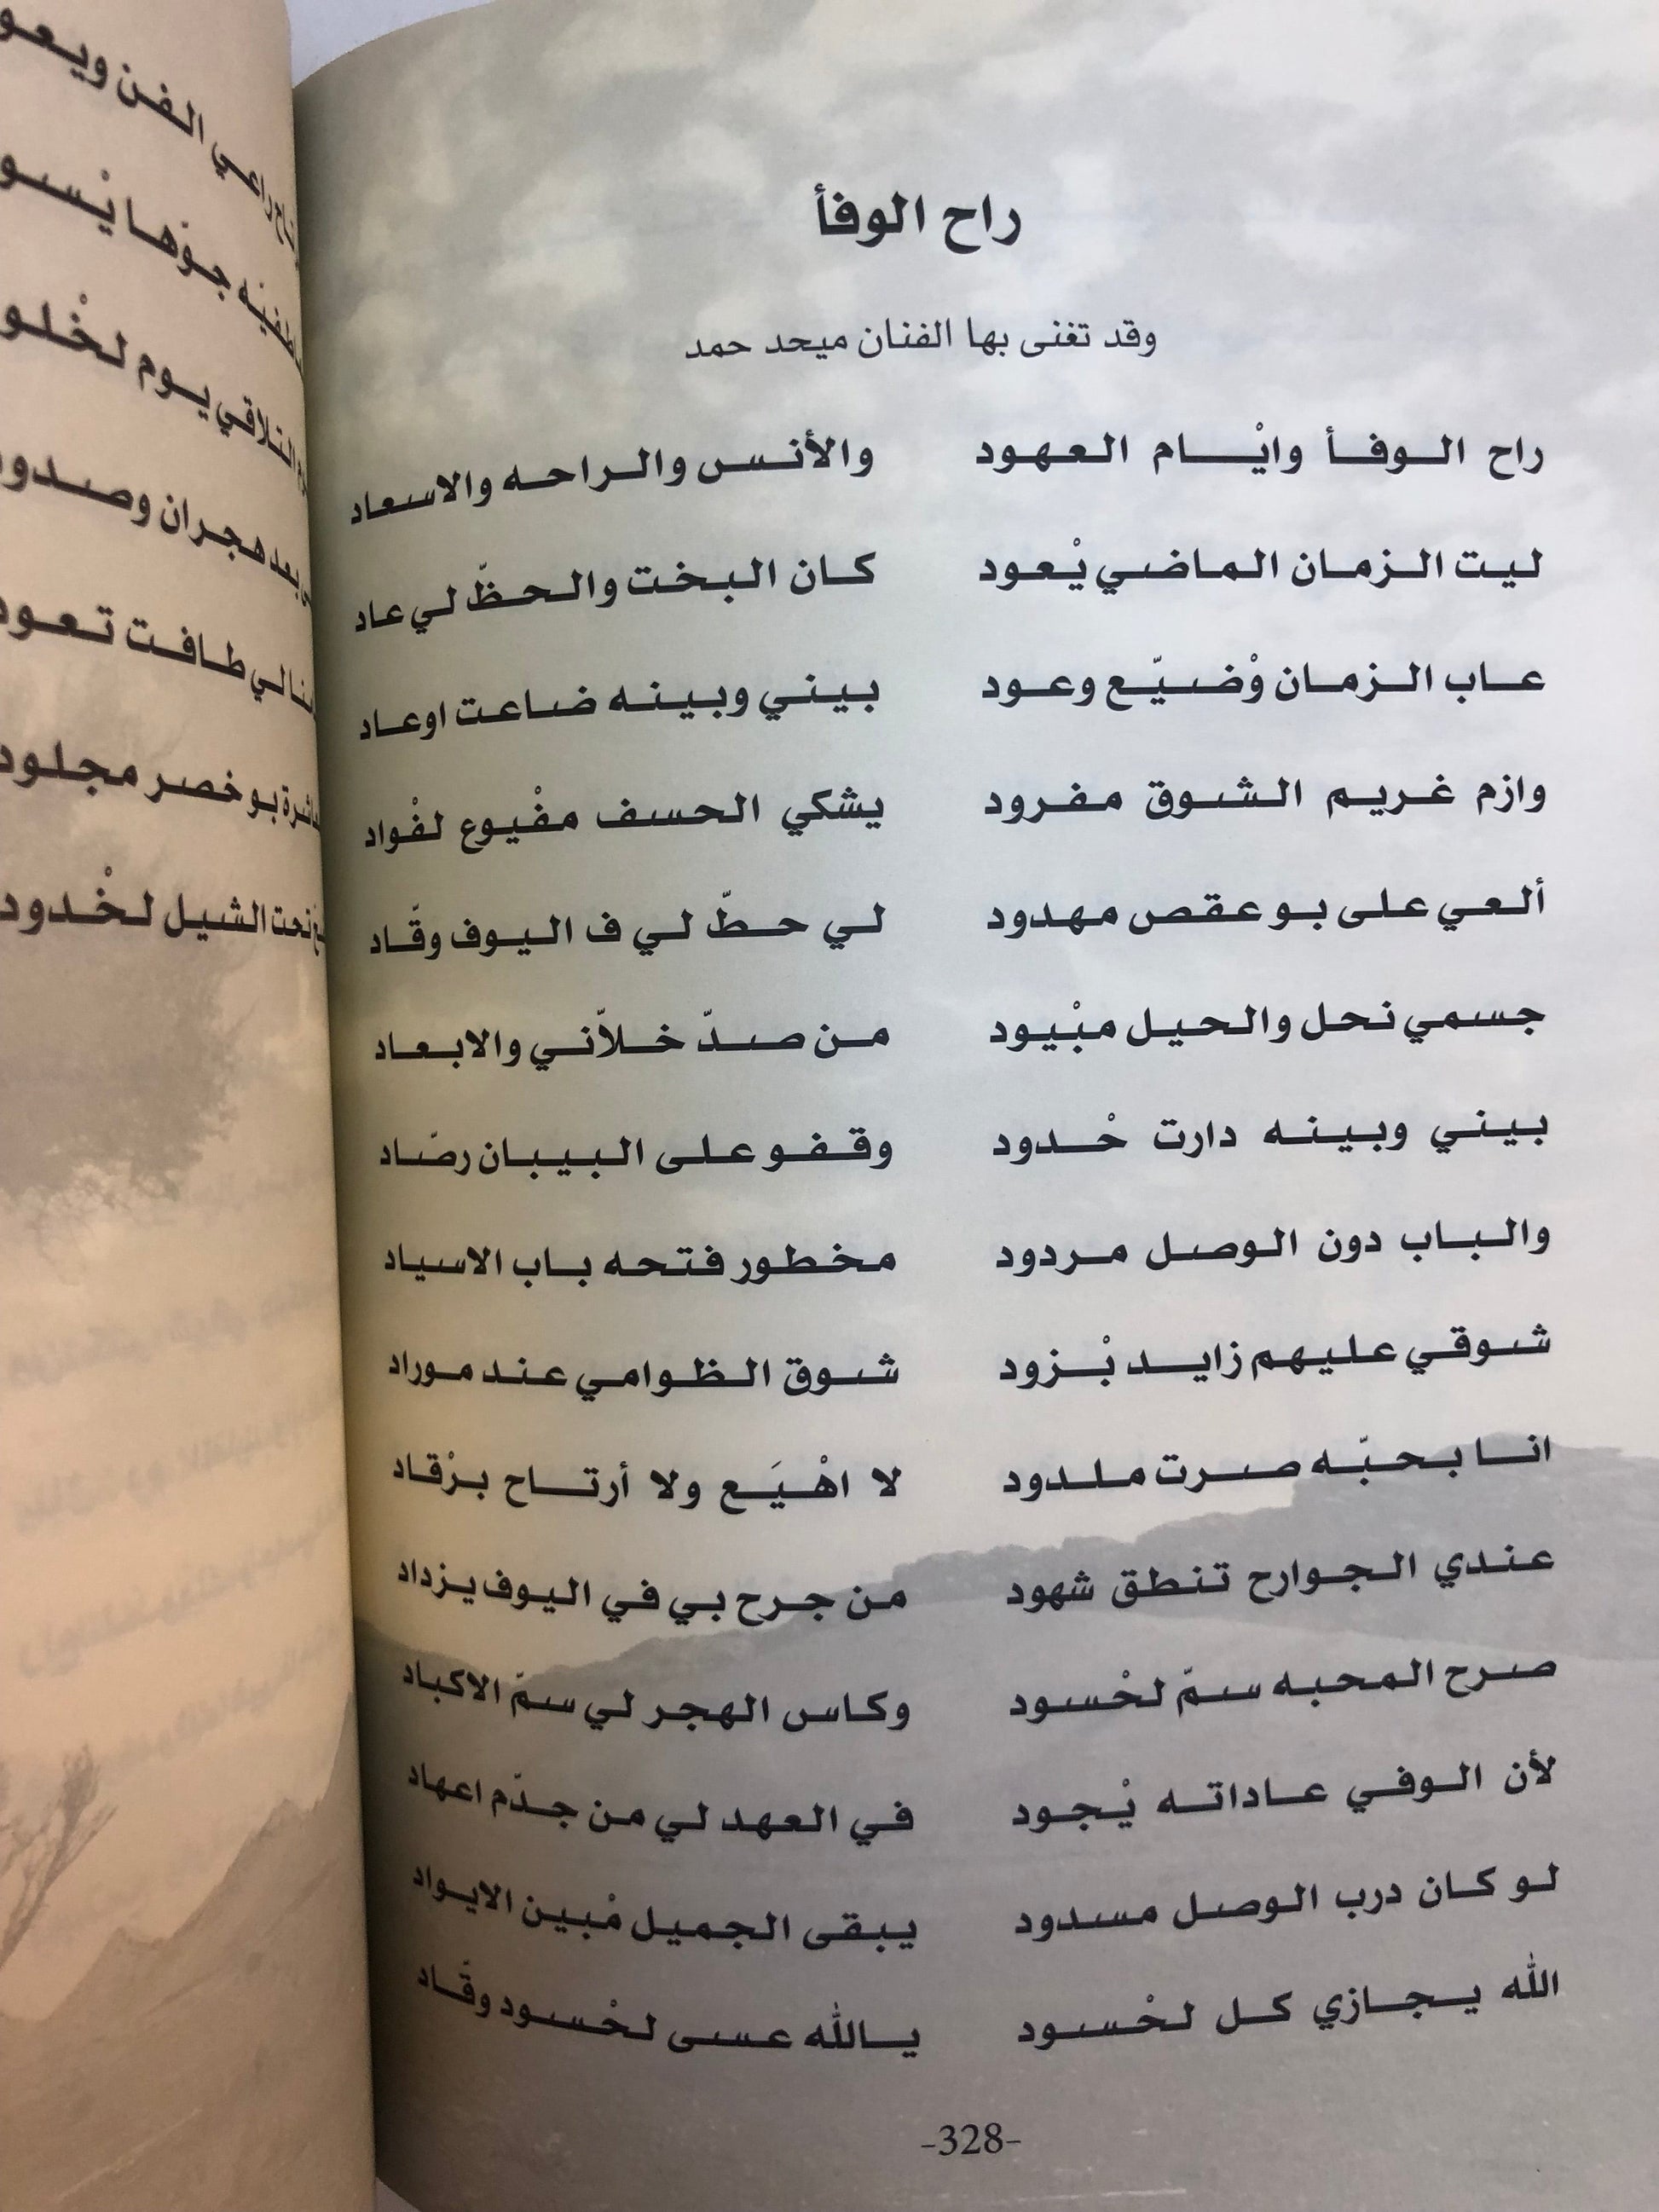 راح الوفأ
وقد تغنى بها الفنان ميحد حمد
راح الوفأ وايْام العهود والأنس والراحه والاسعاد
ليت الزمان الماضي يْعود كان البخت والحظّ لي عاد
عاب الزمان وْضيّع وعود بيني وبينه ضاعت اوعاد
وازم غريم الشوق مفرود يشكي الحسف مفْيوع لفْواد
ألعي على بو عقص مهدود لي حطّ لي ف اليوف وقّاد
جسمي نحل والحيل مبْيود من صدّ خلاّني والابعاد
بيني وبينه دارت حْدود وقفو على البيبان رصّاد
والباب دون الوصل مردود مخطور فتحه باب الاسياد
شوقي عليهم زايد بْزود شوق الظوامي عند موراد
انا بحبّه صرت ملدود لا اهْيَع ولا أرتاح برْقاد
عندي الجوارح تنطق شهود من جرح بي في اليوف يزداد
صرح المحبه سمّ لحْسود وكاس الهجر لي سمّ الاكباد
لأن الوفي عاداته يْجود في العهد لي من جدّم اعهاد
لو كان درب الوصل مسدود يبقى الجميل مْبين الايواد
الله يجازي كل لحْسود يالله عسى لحْسود وقّاد
-328-
الفن ويعو
جوّها يْسو
يوم لخْلو
بعد هجران وصدود
طافت تعود
بو خصر مجلود
تحت الشيل لخْدود